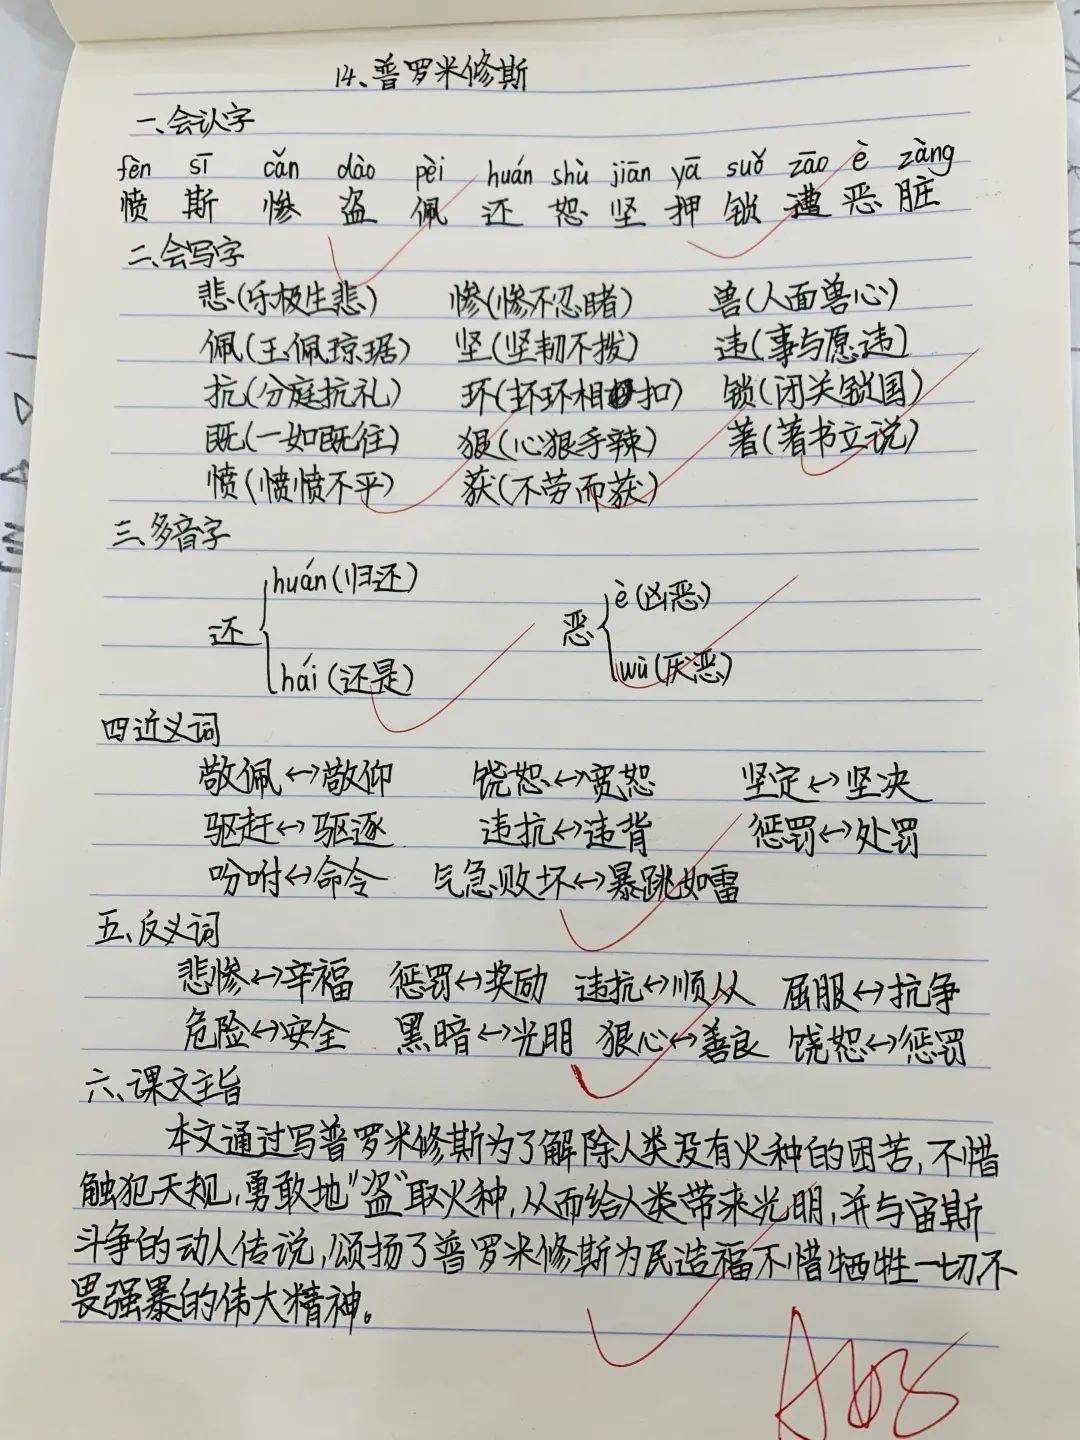 14、普罗米修斯
一、会认字
fèn sī cǎn dào pèi huán shù jiān yā suǒ zāo è zàng
愤 斯 惨 盗 佩 还 恕 坚 押 锁 遭 恶 脏
二、会写字
悲(乐极生悲) 惨(惨不忍睹) 兽(人面兽心)
佩(玉佩琼琚) 坚(坚韧不拨) 违(事与愿违)
抗(分庭抗礼) 环(环环相扣) 锁(闭关锁国)
既(一如既往) 狠(心狠手辣) 著(著书立说)
愤(愤愤不平) 获(不劳而获)
三、多音字
huán(归还) è(凶恶)
还 恶
hái(还是) wù(厌恶)
四近义词
敬佩↔敬仰 饶恕↔宽恕 坚定↔坚决
驱赶↔驱逐 违抗↔违背 惩罚↔处罚
吩咐↔命令 气急败坏↔暴跳如雷
五、反义词
悲惨↔辛福 惩罚↔奖励 违抗↔顺从 屈服↔抗争
危险↔安全 黑暗↔光明 狠心↔善良 饶恕↔惩罚
六、课文主旨
本文通过写普罗米修斯为了解除人类没有火种的困苦,不惜
触犯天规,勇敢地"盗"取火种,从而给人类带来光明,并与宙斯
斗争的动人传说,颂扬了普罗米修斯为民造福不惜牺牲一切不
畏强暴的伟大精神。